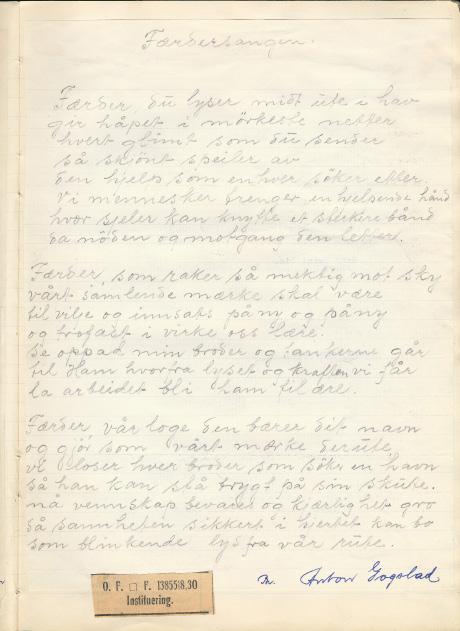 Færdersangen.
Færder, du lyser midt ute i hav
gir håpet i mörkeste netter
hvert glimt som du sender
så skjönt speiler av
den hjelp som enhver söker etter.
Vi mennesker trenger en hjelpende hånd
hvor sjeler kan knytte et sterkere bånd
da nöden og motgang den letter.
Færder, som raker så mektig mot sky
vårt samlende mærke skal være
til vilje og innsats påny og påny
og trofast i virke oss lære.
Se oppad min broder og tankerne går
til Ham hvorfra lyset og kraften vi får
la arbeidet bli ham til ære.
Færder, vår loge den bærer dit navn
og gjör som vårt mærke derute,
vi loser hver broder som söker en havn
så han kan stå trygt på sin skute.
må vennskap bevares og kjærlighet gro
så sannheten sikkert i hjertet kan bo
som blinkende lys fra vår rute.
Anton Gogstad
O. F. □ F. 13855|8,30
Instituering.